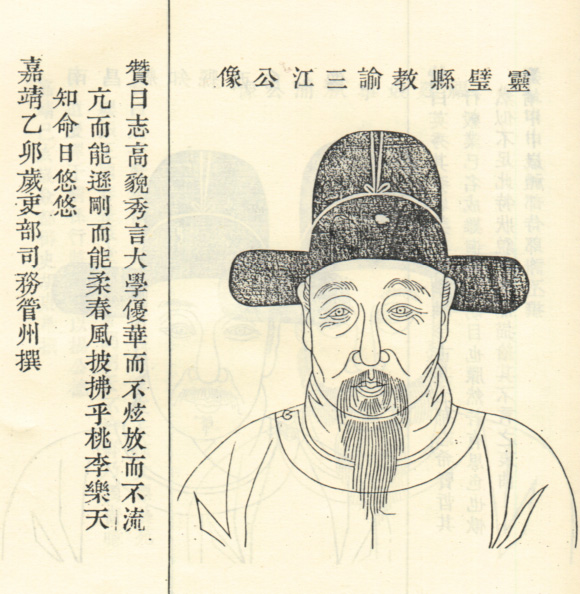 靈璧縣教諭三江公像
贊曰志高貌秀言大學優華而不炫放而不流
亢而能遜剛而能柔春風披拂乎桃李樂天
知命日悠悠
嘉靖乙卯歲吏部司務管州撰